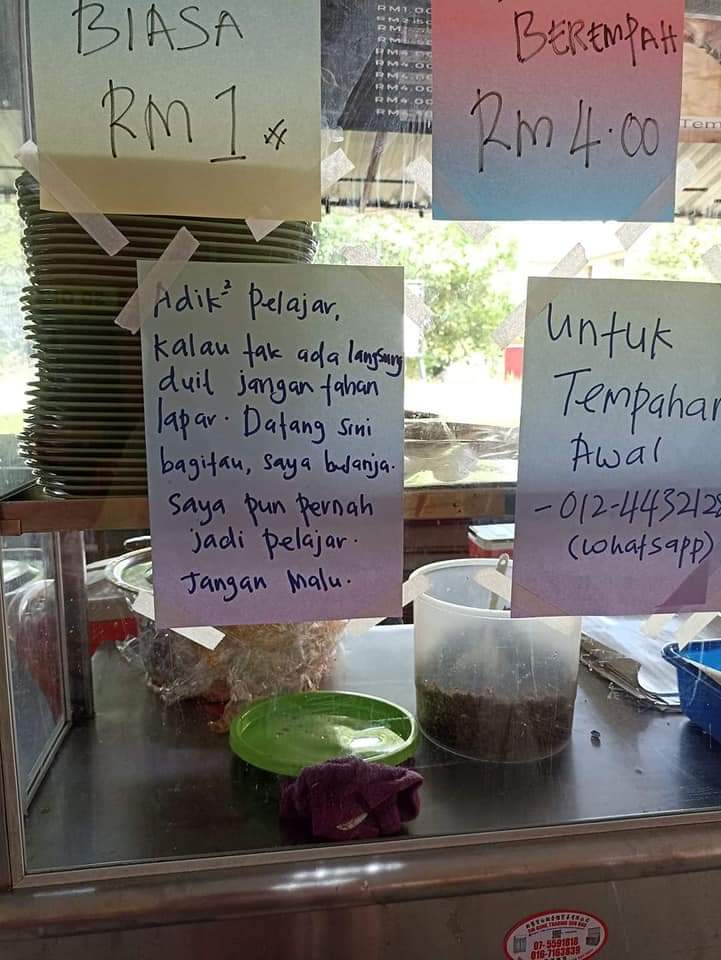 BIASA
RM 1
RM1.00
RM4.00
RM4.00
BEREMPAH
RM 4.00
Tem
Adik² Pelajar,
Kalau tak ada langsung
duit jangan tahan
lapar. Datang sini
bagitau, saya belanja.
saya pun pernah
jadi pelajar.
Jangan Malu.
untuk
Tempahan
Awal
-012-4432128
(whatsapp)
07-5591818
016-7163839